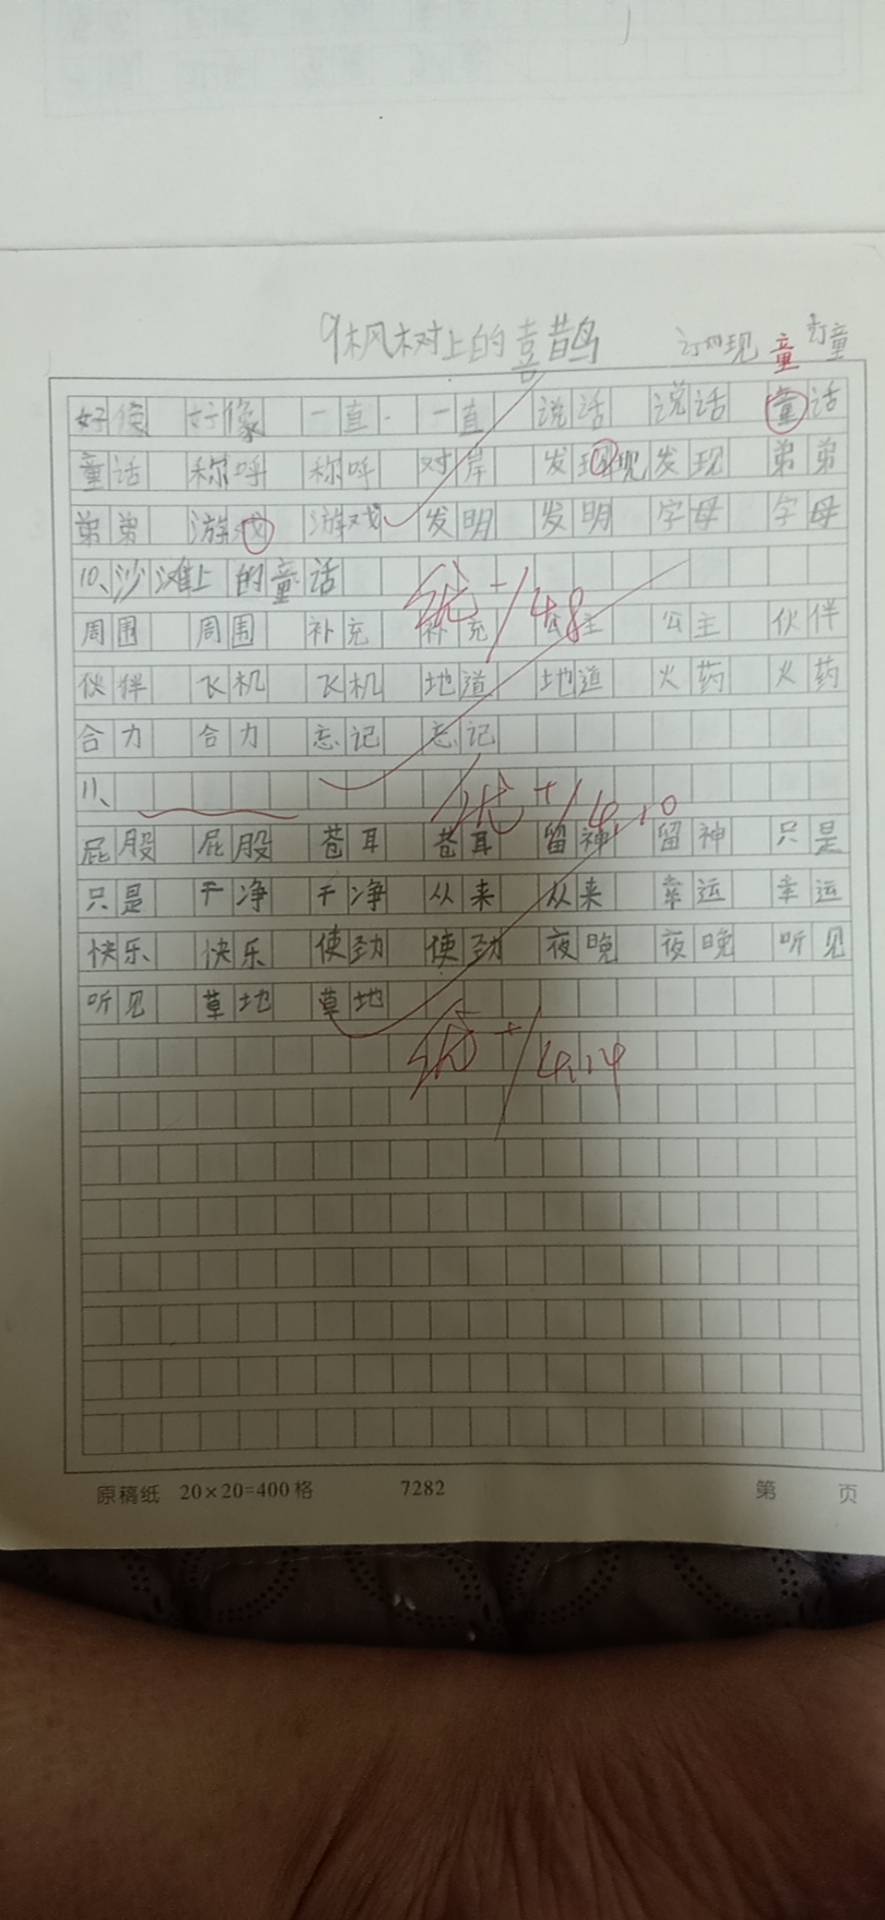 9枫树上的喜鹊 订正现 童 订童
好像 好像 一直 一直 说话 说话 童话
童话 称呼 称呼 对岸 发现现发现 弟弟
弟弟 游戏 游戏 发明 发明 字母 字母
10、沙滩上的童话
优-/4.8
周围 周围 补充 补充 公主 公主 伙伴
伙伴 飞机 飞机 地道 地道 火药 火药
合力 合力 忘记 忘记
11、
优+/4.10
屁股 屁股 苍耳 苍耳 留神 留神 只是
只是 干净 干净 从来 从来 幸运 幸运
快乐 快乐 使劲 使劲 夜晚 夜晚 听见
听见 草地 草地
优+/4.14
原稿纸 20×20=400格 7282 第 页